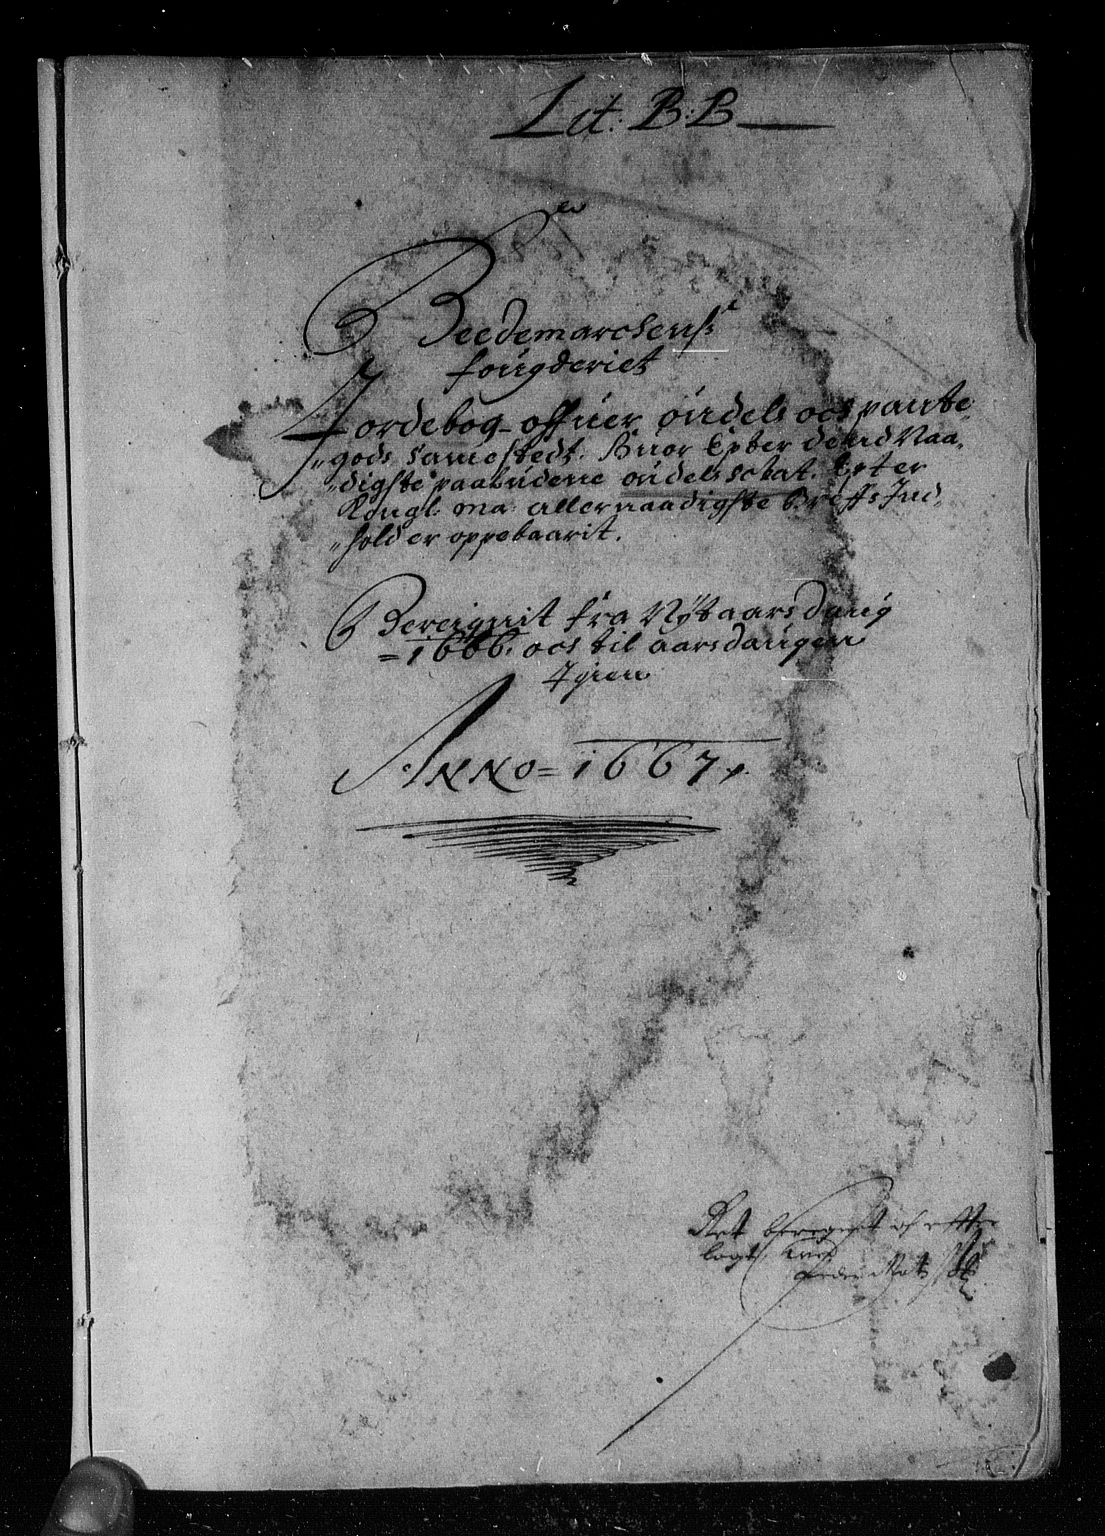 Lit: B:B
Heedemarckens
fougderiet
Jordebog offuer odels och pante
gods samestedt. Huor Epter dend Naa,
digste paabudene odels schat. Epter
Kongl: Ma: allernaadigste Breffs Ind,
hold er oppebaarit.
Bereignit fra Nÿtaars daug
=1666. och til aarsdaugen
Igien
ANNO=1667
Ret beregnet